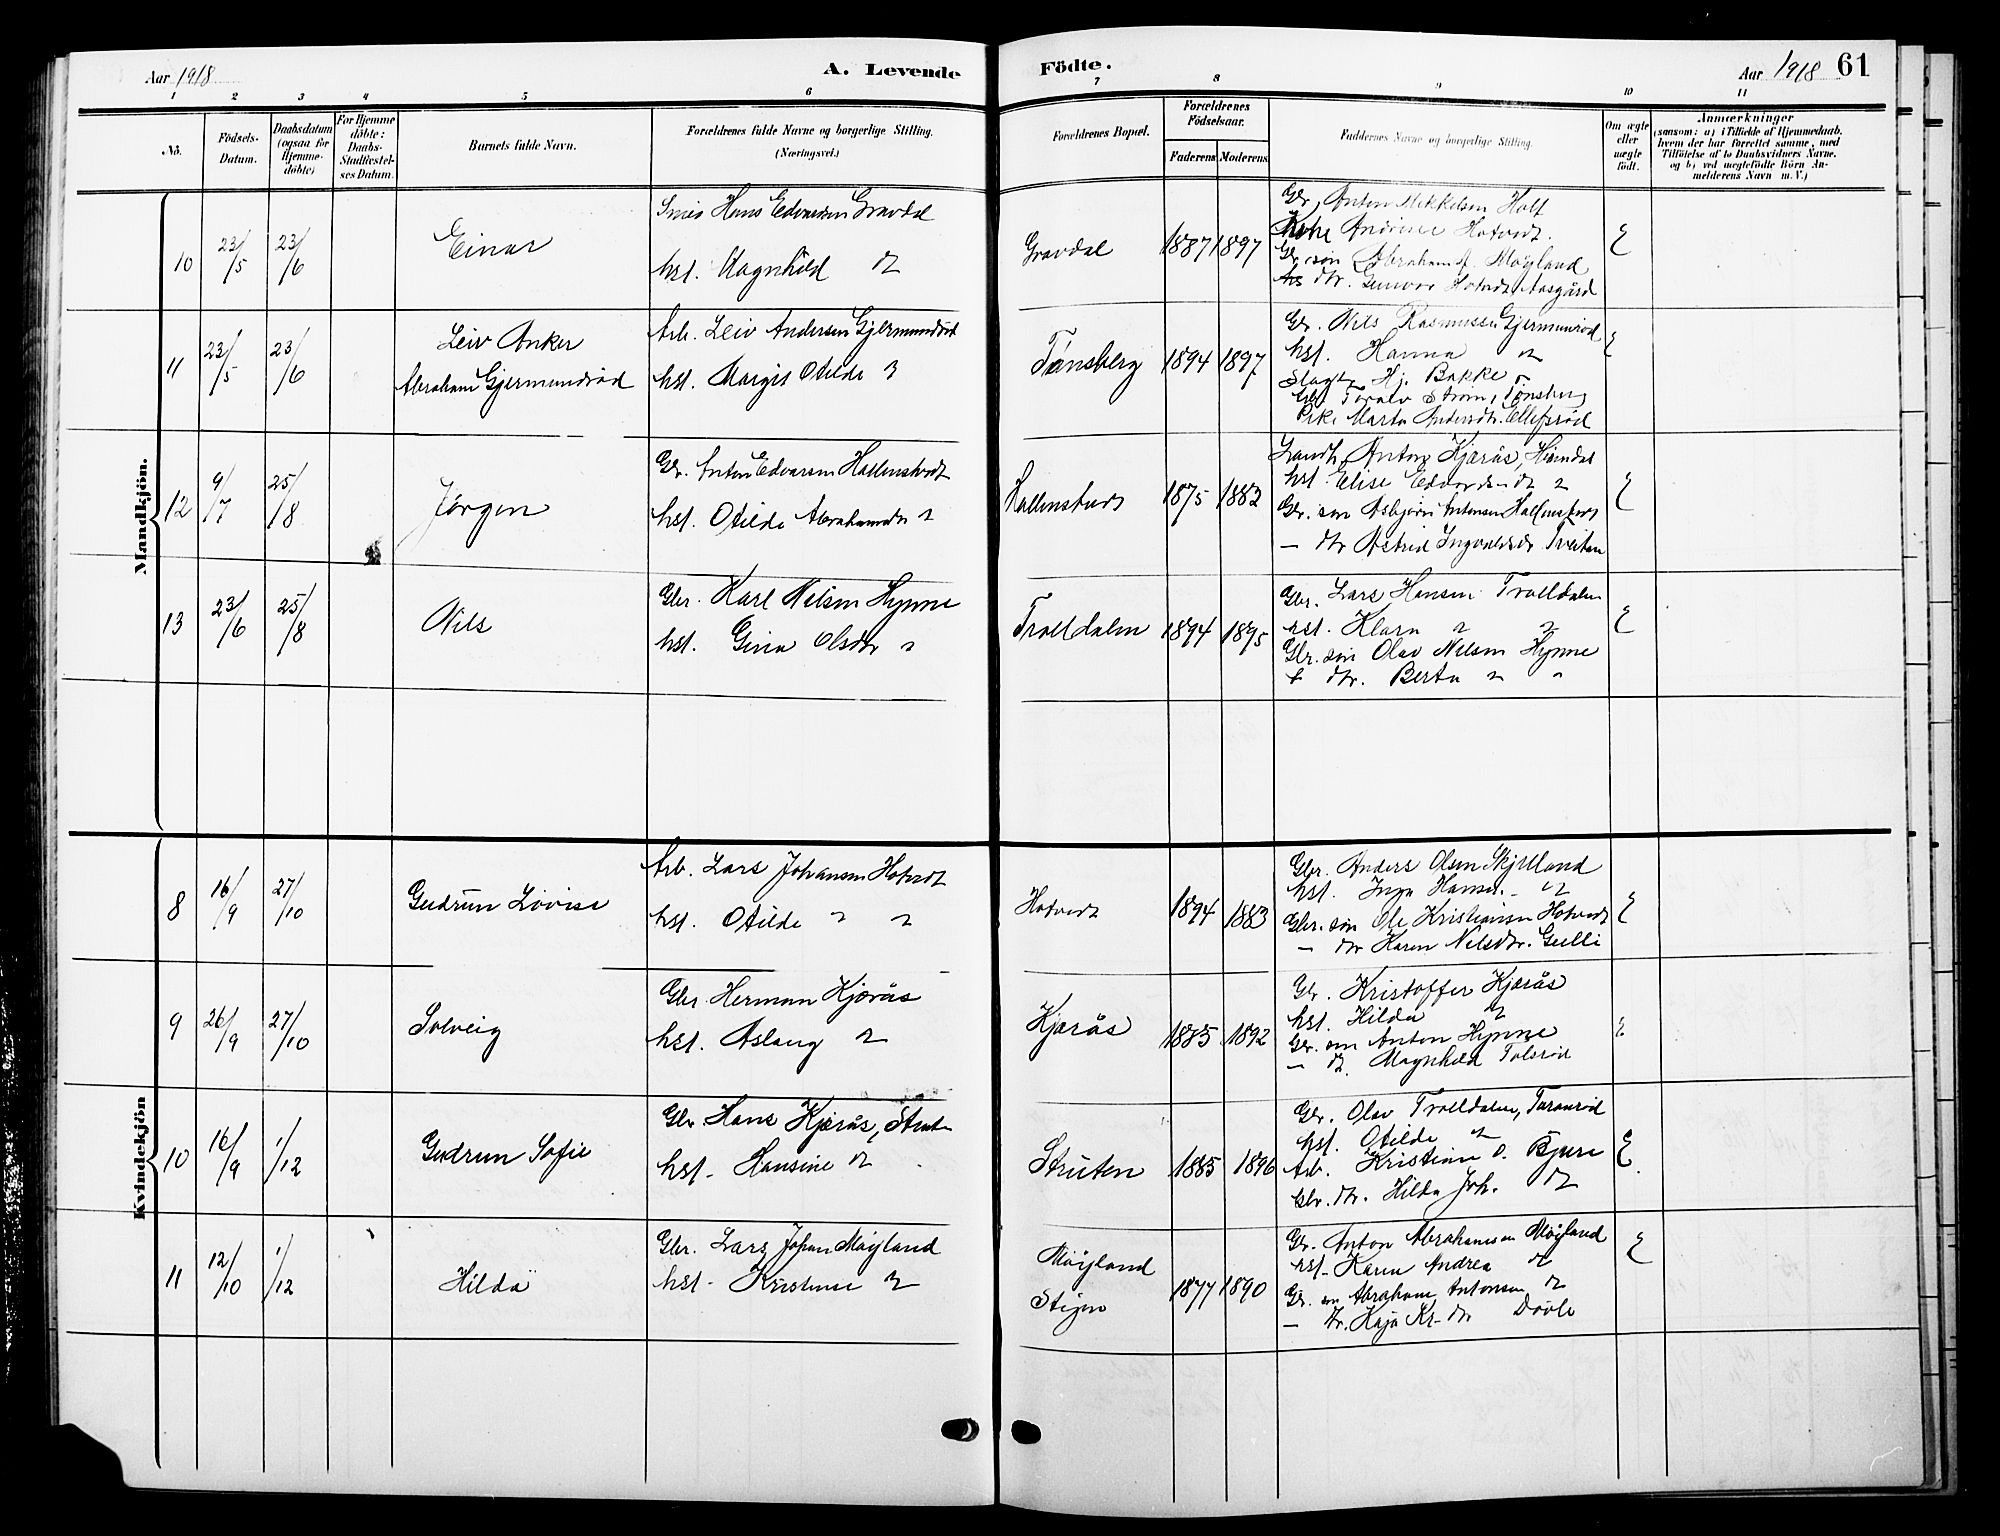 Aar 1918
A. Levende
Födte.
Aar 1918 61
1 2 3 4 5 6 7 8 9 10 11
No.
Födsels-Datum.
Daabsdatum (ogsaa for Hjemme-döbte)
For Hjemme döbte: Daabs-Stadfæstel-ses Datum.
Barnets fulde Navn.
Forældrenes fulde Navne og borgerlige Stilling.
(Næringsvei.)
Forældrenes Bopæl.
Forældrenes Födselsaar.
Faderens Moderens
Faddernes Navne og borgerlige Stilling.
Om ægte eller uægte født.
Anmærkninger
(saasom: a) i Tilfælde af Hjemmedaab, hvem der har forrettet samme, med Tilföielse af to Daabsvidners Navne, og b) ved uægtefödte Börn An-melderens Navn m. V.)
Mandkjön.
10 23/5 23/6 Einar
Smed Hans Edvardsen Gravdal
hst. Ragnhild
Gravdal 1887 1897
Gbr. Anton Mikkelsen Holt
Kone Andrine Hotvedt.
Gbr. søn Abraham Møyland
dtr. Gunvor Hotvedt Aasgård
E
11 23/5 23/6 Leiv Anker
Abraham Gjermundrød
Arb. Leiv Andersen Gjermundrød
hst. Margit Otilde
Tønsberg 1894 1897
Gbr. Nils Rasmussen Gjermunrød
hst. Hanna
Hj. Bakke
Toralv Strøm, Tønsberg
Pike Marta Andersdtr. Ellefsrød
E
12 9/7 25/8 Jørgen
Gbr. Anton Edvarsen Hallenstvedt
hst. Otilde Abrahamsdtr
Hallenstvedt 1875 1882
Landh. Anton Kjærås, Hanedal
hst. Elise Edvardsen
Gbr. søn Asbjørn Antonsen Hallenstvedt
— dtr Astrid Ingvaldsdr Tveiten
E
13 23/6 25/8 Nils
Gbr. Karl Nilsen Hynne
hst. Gina Olsdtr
Trolldalen 1894 1895
Gbr. Lars Hansen Trolldalen
hst. Klara
Gbr. søn Olav Nilsen Hynne
dtr. Berta
E
Kvindekjön
8 16/9 27/10 Gudrun Lovise
Arb. Lars Johansen Hotvedt
hst. Otilde
Hotvedt 1894 1883
Gbr. Anders Olsen Skjelland
hst. Inga Hansd.
Gbr. søn Ole Kristiansen Hotvedt
— dtr Karen Nilsdtr. Gulli
E
9 26/9 27/10 Solveig
Gbr. Herman Kjærås
hst. Aslaug
Kjærås 1885 1892
Gbr. Kristoffer Kjærås
hst. Hilda
Gbr. søn Anton Hynne
— d. Magnhild Tolsrød
E
10 16/9 1/12 Gudrun Sofie
Gbr Hans Kjærås, Struten
hst- Hansine
Struten 1885 1896
Gbr. Olav Trolldalen, Taranrød
hst. Otilde
Arb. Kristian O. Bjune
Gbr. dtr. Hilda Joh.
E
11 12/10 1/12 Hilda
Gbr. Lars Johan Møyland
hst- Kristense
Møyland
Stigen
1877 1890
Gbr. Anton Abrahamsen Møyland
hst- Karen Andrea
Gbr. søn Abraham Antonsen
— dtr. Kaja Kr- dtr Døvle
E